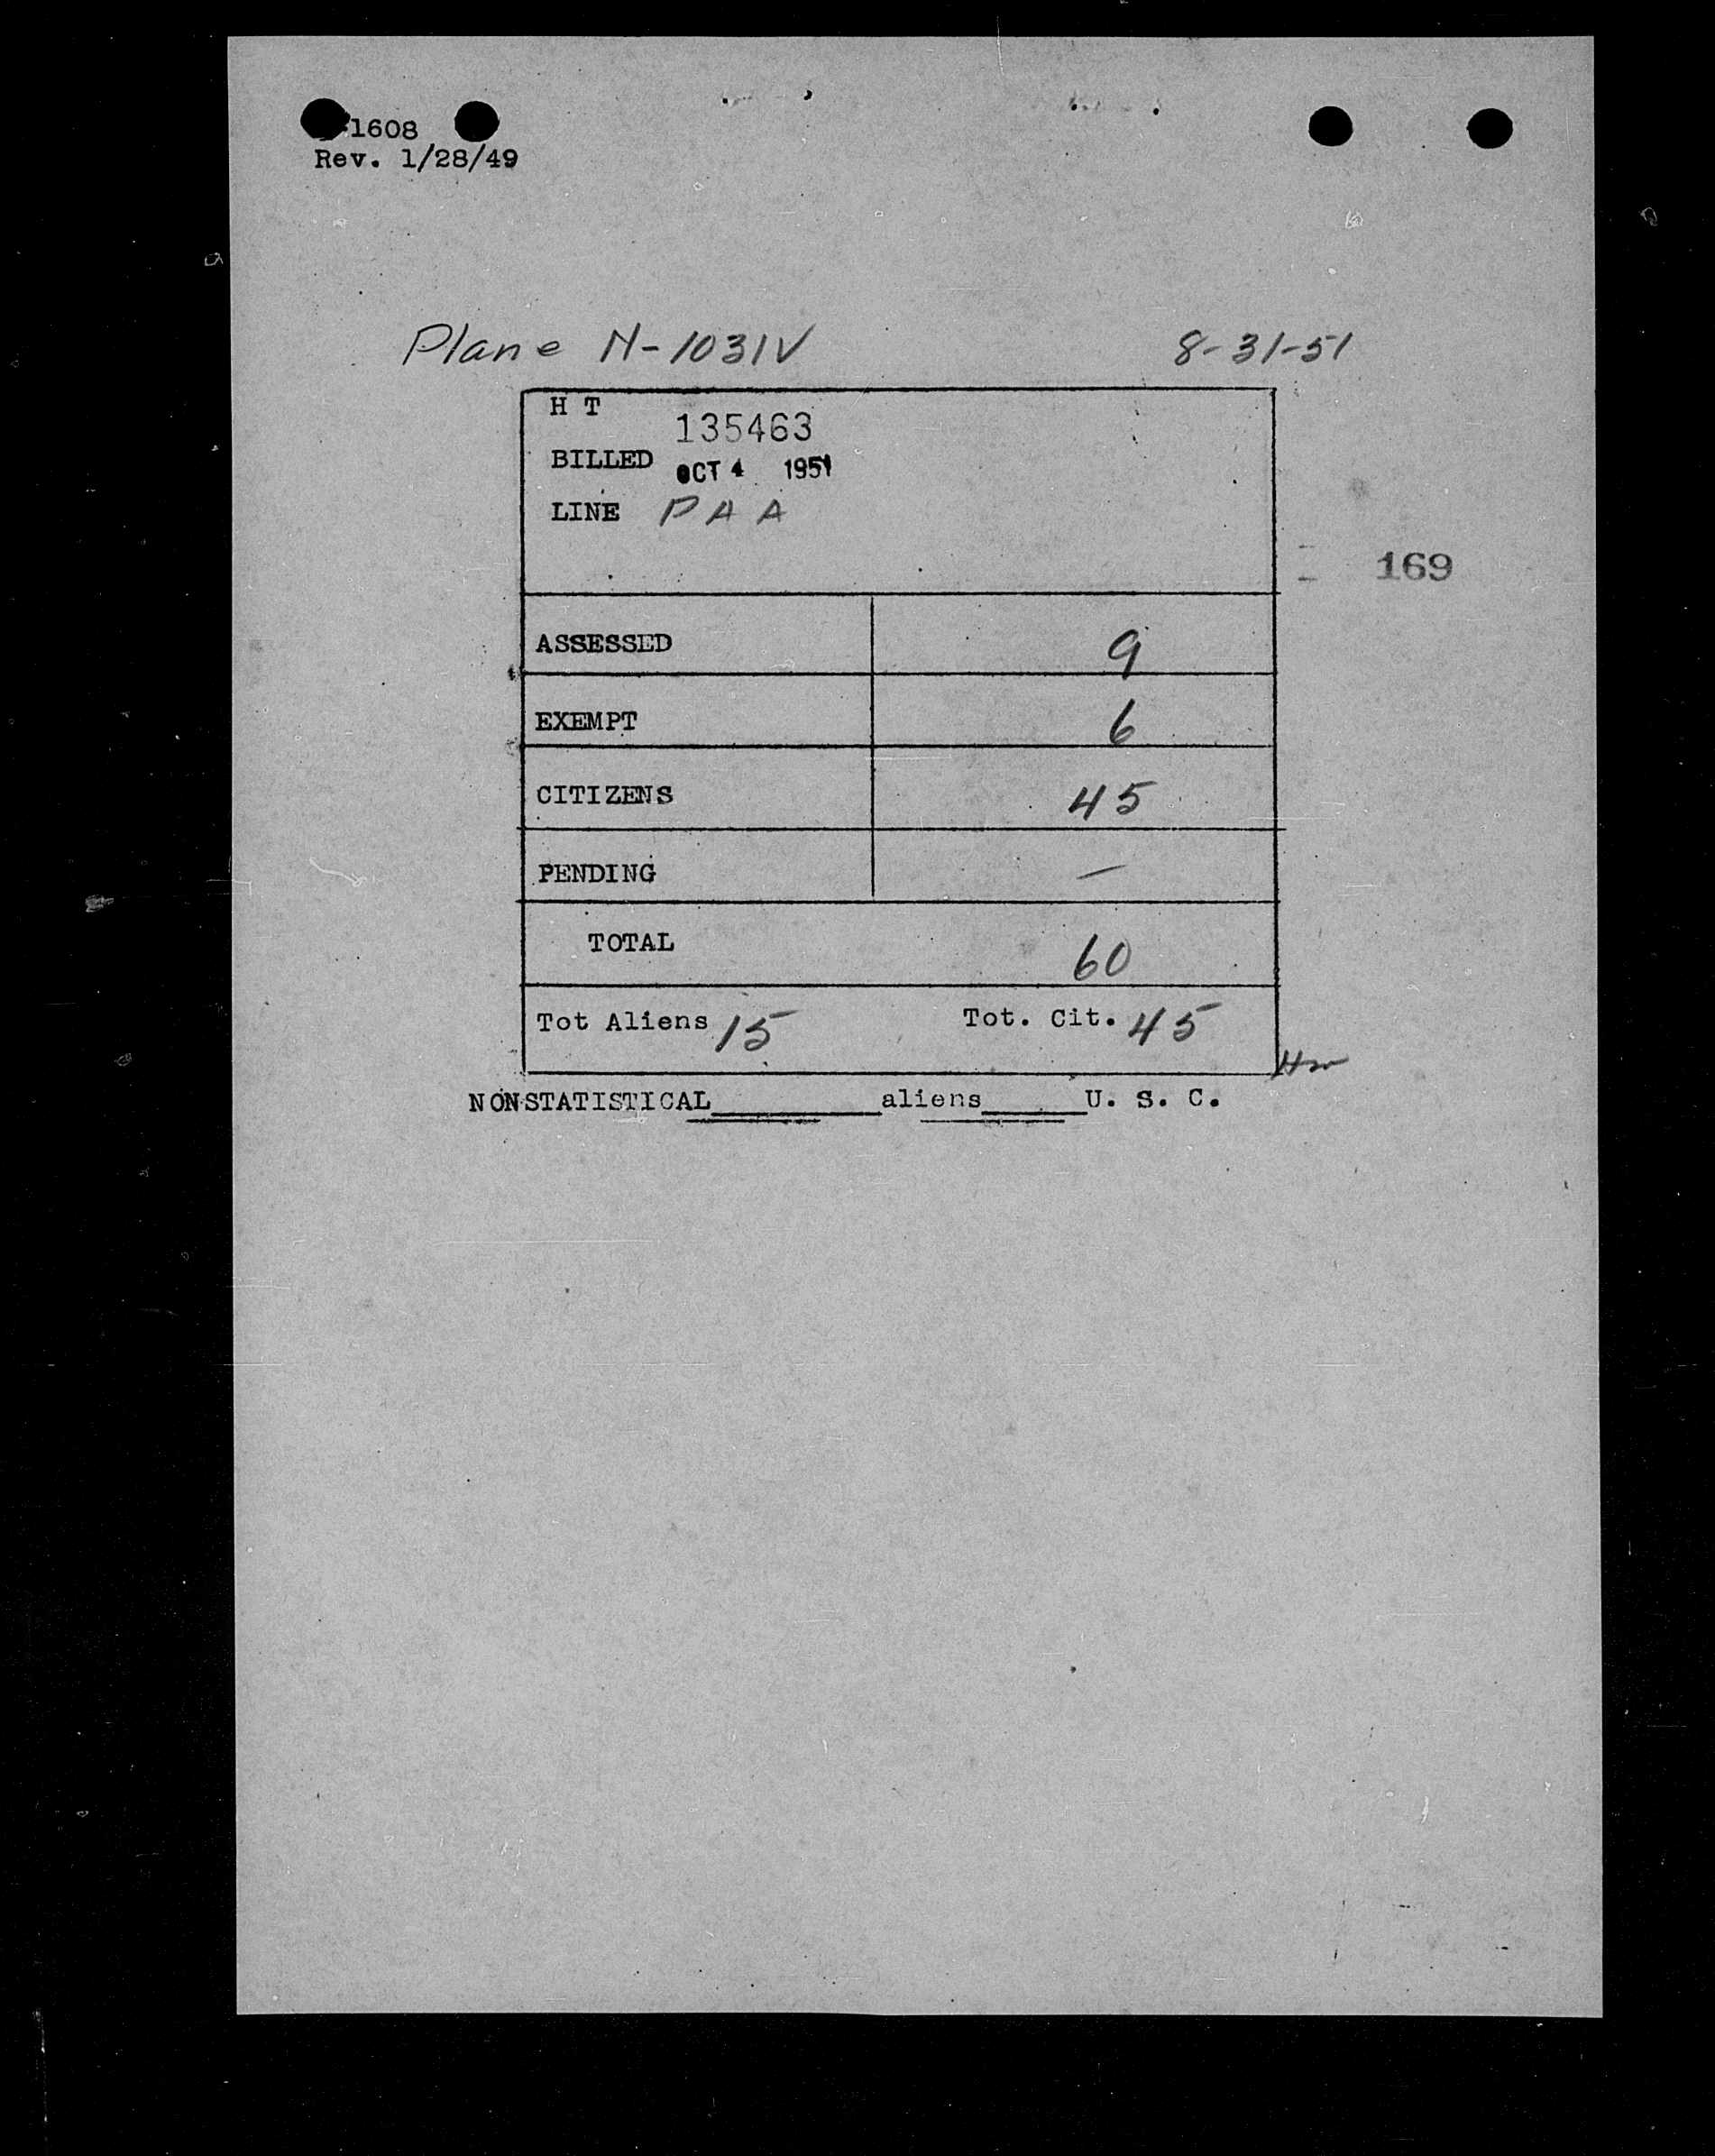 -1608
Rev. 1/28/49
Plane N-1031V 8-31-51
H T 135463
BILLED OCT 4 1951
LINE PAA
169
ASSESSED 9
EXEMPT 6
CITIZENS 45
PENDING —
TOTAL 60
Tot Aliens 15 Tot. Cit. 45
NONSTATISTICAL________aliens_____U. S. C.